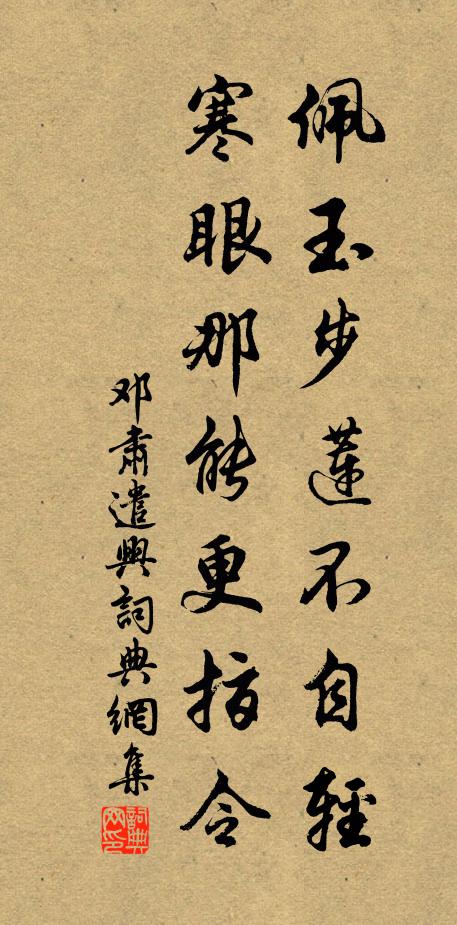 佩玉步蓮不自輕
寒眼那能更指令
邓肅遣興詞典網集
詞典網印